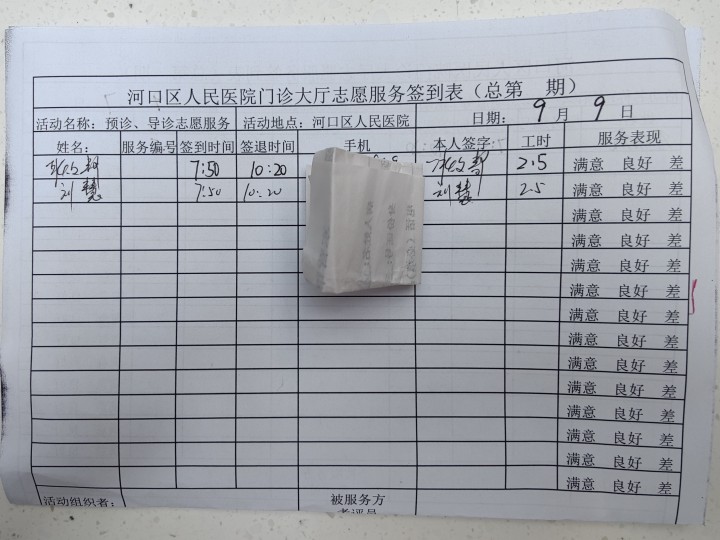 河口区人民医院门诊大厅志愿服务签到表（总第 期）
活动名称: 预诊、导诊志愿服务 活动地点: 河口区人民医院 日期: 9 月 9 日
姓名: 服务编号 签到时间 签退时间 手机 本人签字: 工时 服务表现
7:50 10:20 2.5 满意 良好 差
刘慧 7:50 10:20 刘慧 2.5 满意 良好 差
满意 良好 差
满意 良好 差
满意 良好 差
满意 良好 差
满意 良好 差
满意 良好 差
满意 良好 差
满意 良好 差
满意 良好 差
满意 良好 差
满意 良好 差
满意 良好 差
活动组织者: 被服务方
考评员